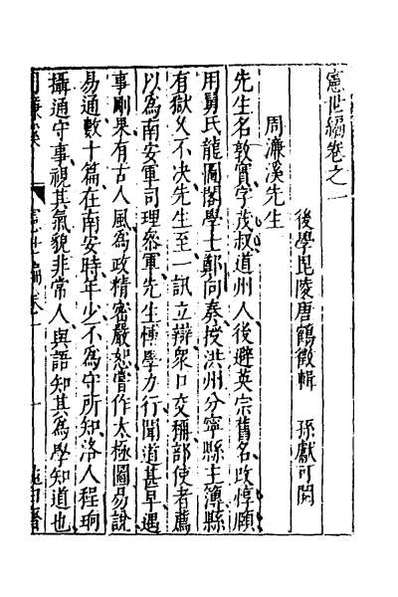 憲世編卷之一
後學毘陵唐鶴徵輯　孫獻可閱
周濂溪先生
先生名敦實字茂叔道州人後避英宗舊名改惇頤
用舅氏龍圖閣學士鄭向奏授洪州分寧縣主簿縣
有獄久不決先生至一訊立辯衆口交稱部使者薦
以為南安軍司理叅軍先生博學力行聞道甚早遇
事剛果有古人風為政精密嚴恕嘗作太極圖易說
易通數十篇在南安時年少不為守所知洛人程珦
攝通守事視其氣貌非常人與語知其為學知道也
憲世編卷一
一